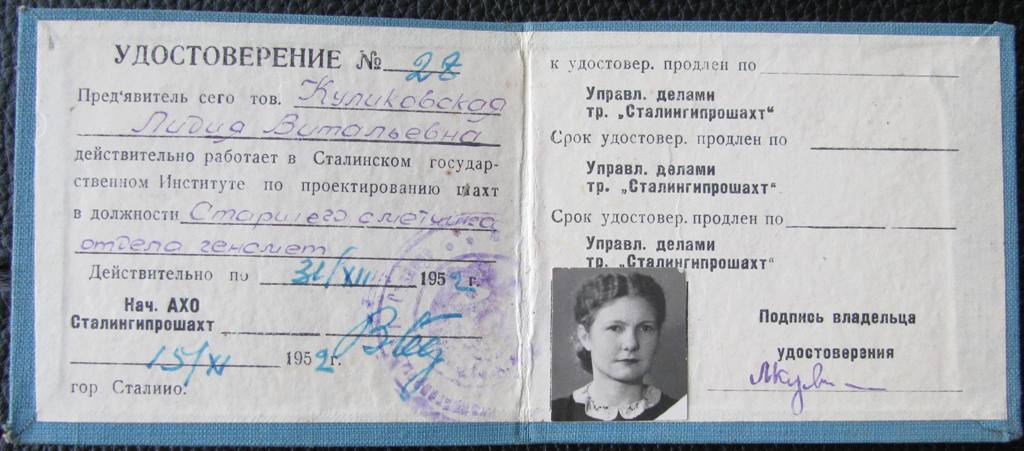 УДОСТОВЕРЕНИЕ № 28
Пред'явитель сего тов. Куликовская
Лидия Витальевна
действительно работает в Сталинском государ-
ственном Институте по проектированию шахт
в должности Старшего сметчика
отдела генсмет
Действительно по 31/XII 1952 г.
Нач. АХО
Сталингипрошахт
15/XI 1952 г.
гор Сталино.
к удостовер. продлен по
Управл. делами
тр. „Сталингипрошахт“
Срок удостовер. продлен по
Управл. делами
тр. „Сталингипрошахт“
Срок удостовер. продлен по
Управл. делами
тр. „Сталингипрошахт“
Подпись владельца
удостоверения